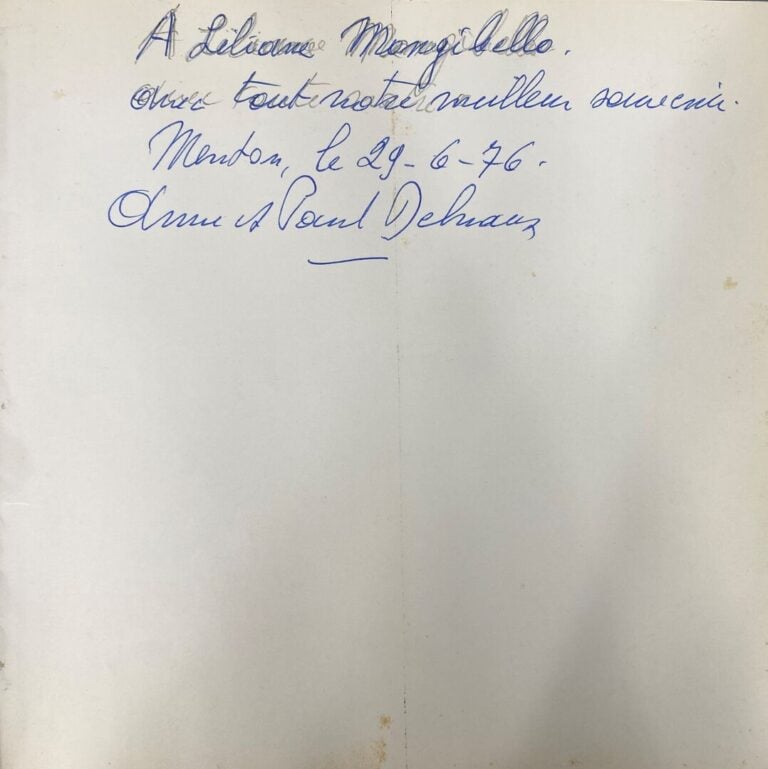 A Liliane Mangibello.
avec tout notre meilleur souvenir.
Menton, le 29-6-76.
Anne et Paul